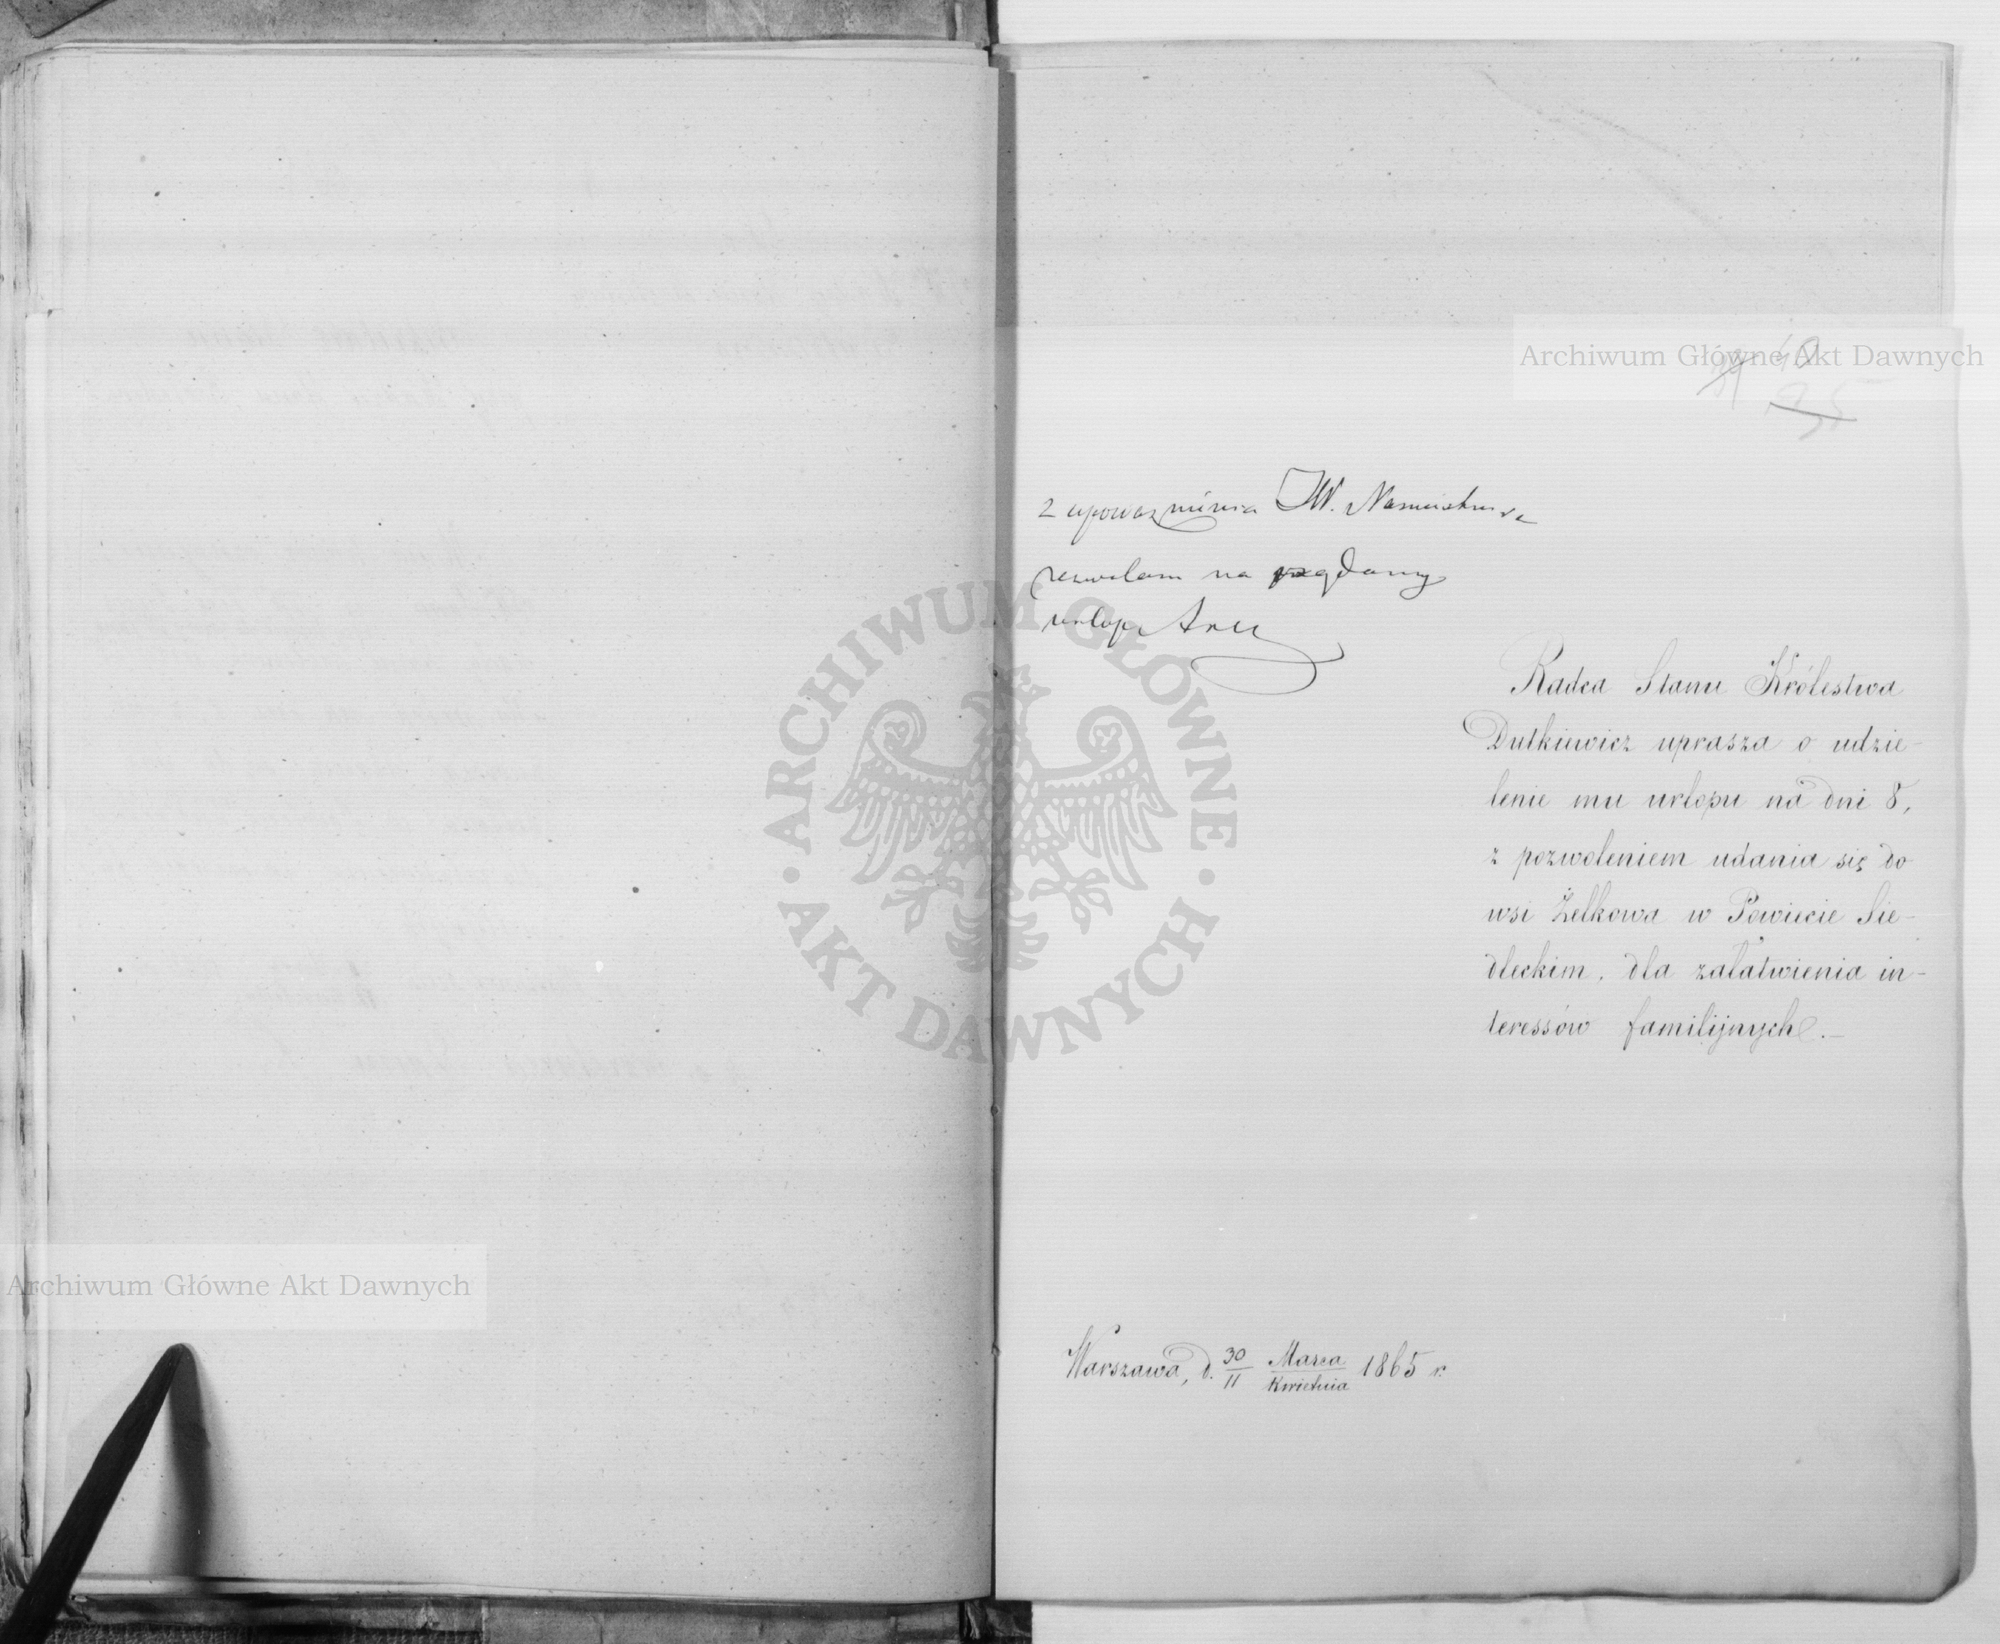 Archiwum Główne Akt Dawnych
40
95
z upoważnienia JW. Namiestnika
zezwalam na żądany
urlop
Radca Stanu Królestwa
Dutkiewicz uprasza o udzie-
lenie mu urlopu na dni 8,
z pozwoleniem udania się do
wsi Żelkowa w Powiecie Sie-
dleckim, dla załatwienia in-
teressów familijnych.—
Warszawa, d. 30/11 Marca/Kwietnia 1865 r.
ARCHIWUM GŁÓWNE
AKT DAWNYCH
Archiwum Główne Akt Dawnych